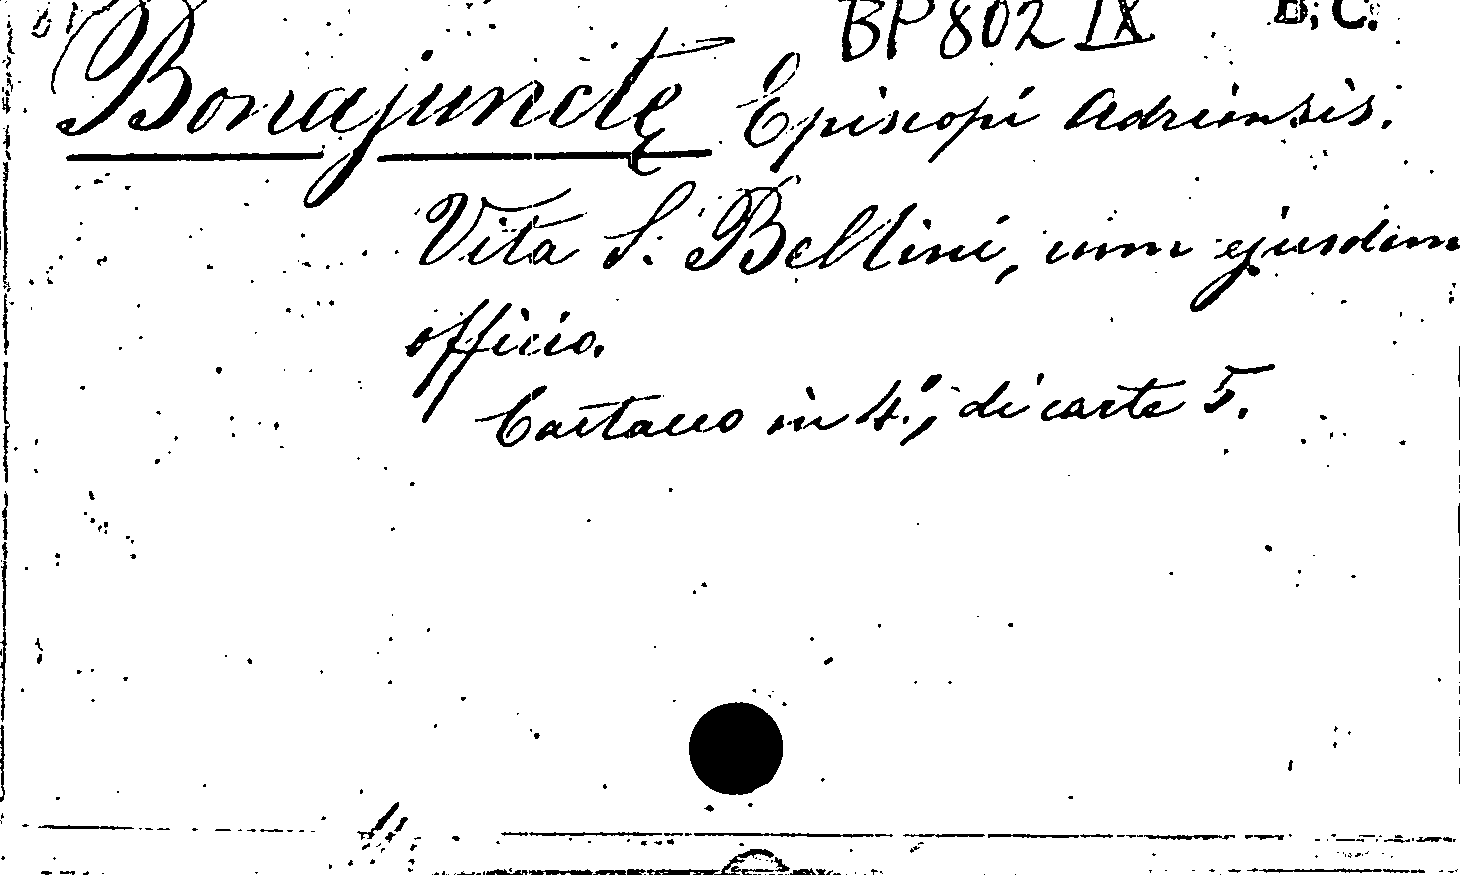 BP 802 IX B. C.
Bonajunctę Episcopi Adriensis.
Vita S. Bellini, cum ejusdem
officio.
Cartaceo in 4.º, di carte 5.